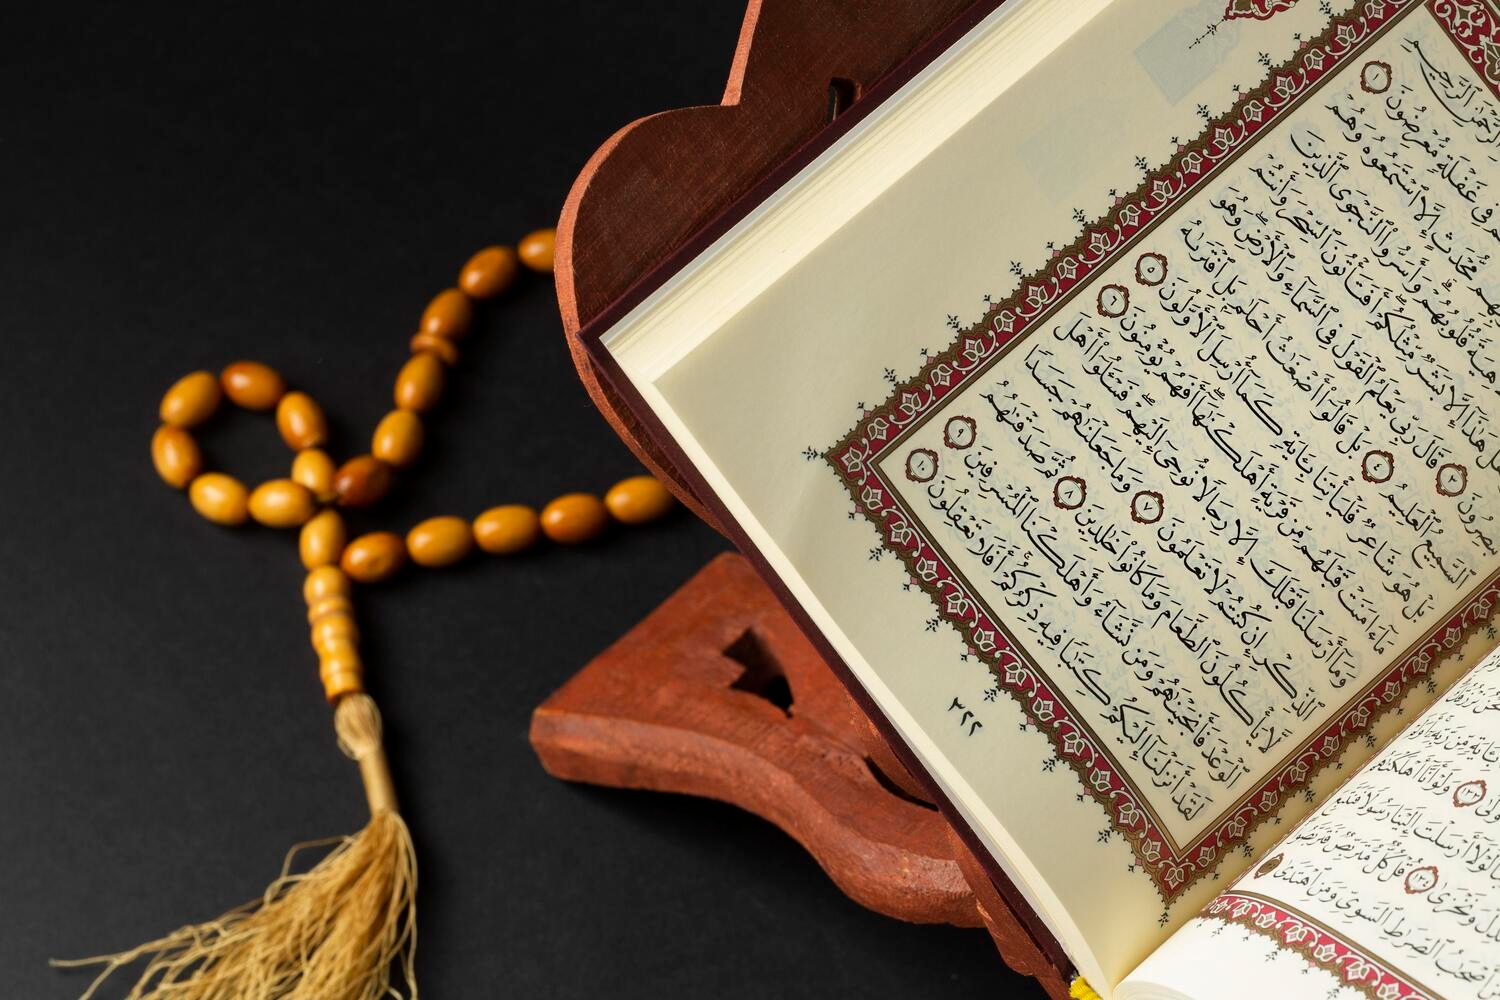 ـرحمن الرحيم
ـم في غفلة معرضون ١
ـهم محدث إلا استمعوه وهم
ـاهية قلوبهم وأسروا النجوى الذين
هل هذا إلا بشر مثلكم أفتأتون السحر وأنتم
تبصرون ٣ قال ربي يعلم القول في السماء والأرض وهو
السميع العليم ٤ بل قالوا أضغاث أحلام بل افتراه
بل هو شاعر فليأتنا بآية كما أرسل الأولون ٥
ما ءامنت قبلهم من قرية أهلكناها أفهم يؤمنون ٦
وما أرسلنا قبلك إلا رجالا نوحي إليهم فسـٔلوا أهل
الذكر إن كنتم لا تعلمون ٧ وما جعلناهم جسدا
لا يأكلون الطعام وما كانوا خالدين ٨ ثم صدقناهم
الوعد فأنجيناهم ومن نشاء وأهلكنا المسرفين ٩
لقد أنزلنا إليكم كتابا فيه ذكركم أفلا تعقلون ١٠
٣٢٢
بـٔاية من ربه أولم
ـولى ١٣٣ ولو أنا أهلكناهم
ـا لولا أرسلت إلينا رسولا فنتبع
ـذل ونخزى ١٣٤ قل كل متربص فتربصوا
أصحاب الصراط السوي ومن اهتدى